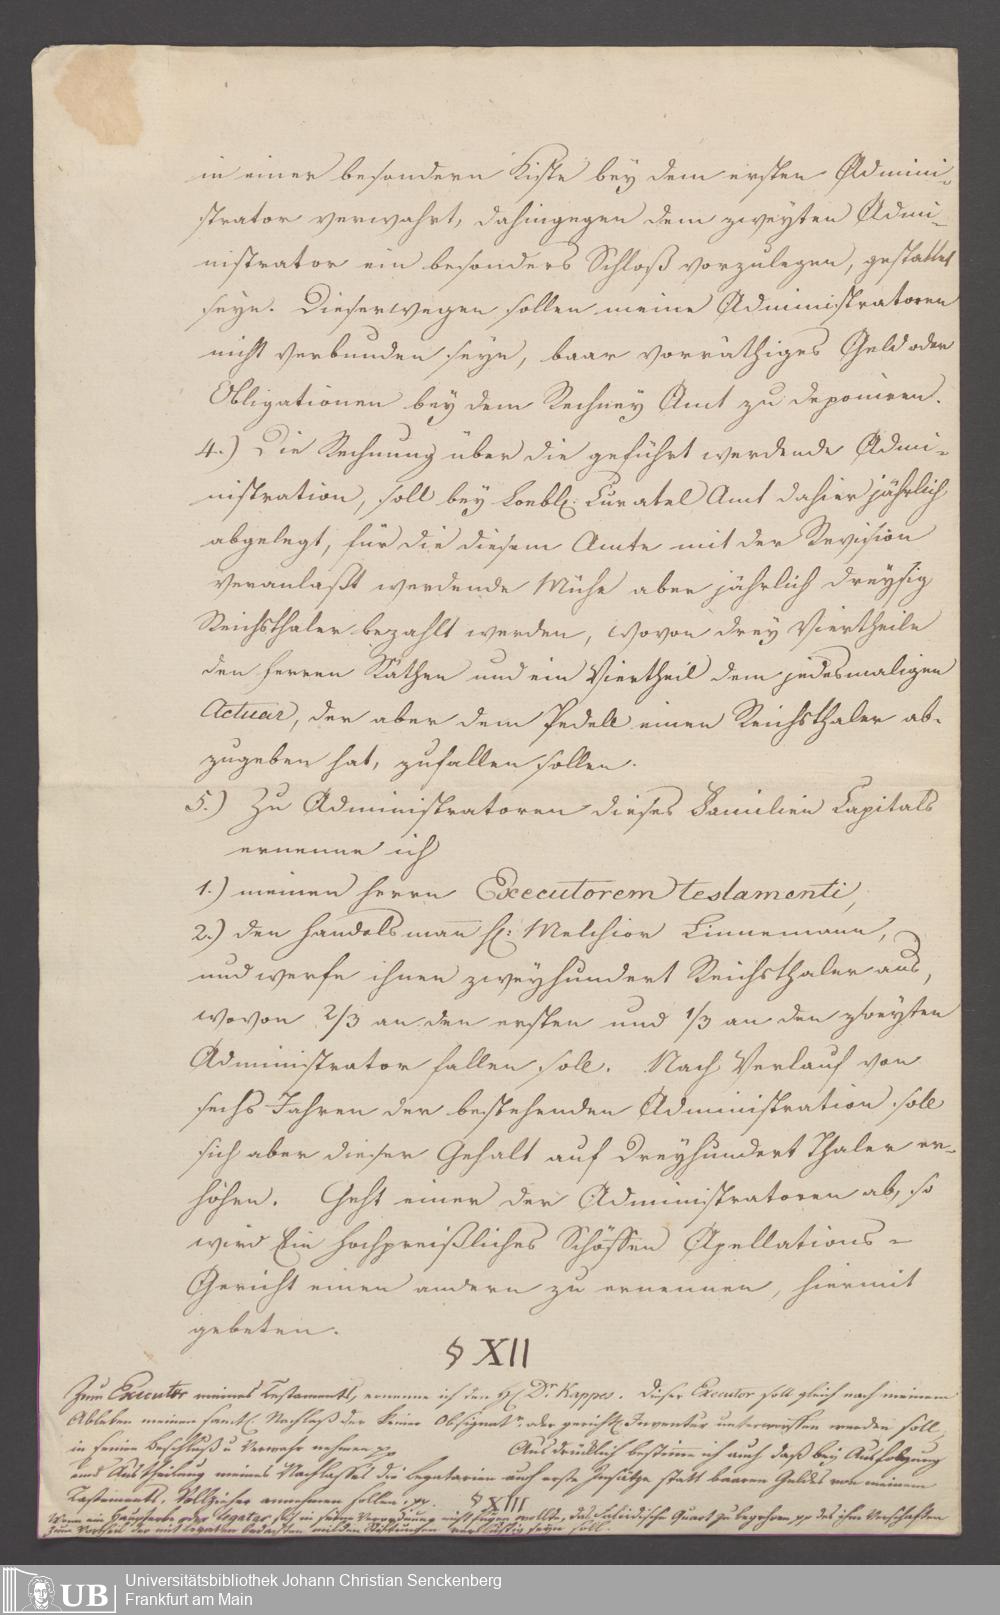 in einer besondern Kiste bey dem ersten Admini-
strator verwahrt, dahingegen dem zweyten Admi-
nistrator ein besonders Schloß vorzulegen, gestattet
seyn. Dieserwegen sollen meine Administratoren
nicht verbunden seyn, baar vorräthiges Geld oder
Obligationen bey dem Rechney Amt zu deponiren.
4.) Die Rechnung über die geführt werdende Admi-
nistration, soll bey Loebl: Curatel Amt dahier jährlich
abgelegt, für die diesem Amte mit der Revision
veranlaßt werdende Mühe aber jährlich dreysig
Reichsthaler bezahlt werden, wovon drey Viertheile
den Herren Räthen und ein Viertheil dem jedesmaligen
Actuar, der aber dem Pedell einen Reichsthaler ab-
zugeben hat, zufallen sollen.
5.) Zu Administratoren dieses Familien Capitals
ernenne ich
1.) meinen Herrn Executorem testamenti,
2.) den Handelsmañ H: Melchior Linnemann,
und werfe ihnen zweyhundert Reichsthaler aus,
wovon 2/3 an den ersten und 1/3 an den zweyten
Administrator fallen soll. Nach Verlauf von
sechs Jahren der bestehenden Administration soll
sich aber dieser Gehalt auf dreyhundert Thaler er-
höhen. Geht einer der Administratoren ab, so
wird Ein Hochpreißliches Schöffen Apellations-
Gericht einen andern zu ernennen, hiermit
gebeten.
§ XII
Zum Executor meines Testaments, ernenne ich den H. Dr. Kappes. Dieser Executor soll gleich nach meinem
Ableben meinen samtl. Nachlaß der keiner Obsignatn. oder gerichtl. Inventur unterworffen werden soll,
in seinen Beschluß u Verwahr nehmen pp Ausdrücklich bestimme ich auch daß bey Ausfolgung
und Austheilung meines Nachlasses die Legatarien auch erste Insätze statt baaren Geldes von meinem
Testaments Vollzieher annehmen sollen. pp. § XIII
Wenn ein oder Legatar sich in seine Verordnung nicht fügen wollte, das Falcidische Quart zu begehren, pp des ihm Verschafften
zum Vortheil der mit Legaten bedachten milden Stiftungen verlustig seyn soll.
Universitätsbibliothek Johann Christian Senckenberg
Frankfurt am Main
UB